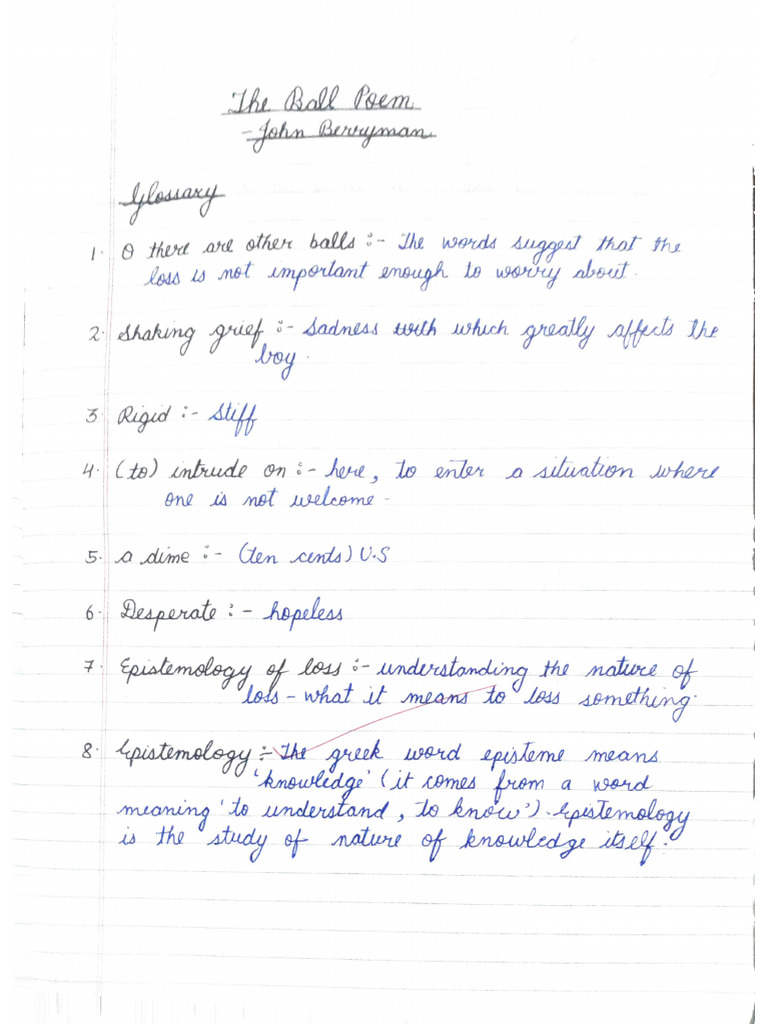 The Ball Poem
- John Berryman
Glossary
1. O there are other balls :- The words suggest that the
loss is not important enough to worry about.
2. Shaking grief :- Sadness with which greatly affects the
boy.
3. Rigid :- Stiff
4. (to) intrude on :- here, to enter a situation where
one is not welcome -
5. a dime :- (ten cents) U.S
6. Desperate :- hopeless
7. Epistemology of loss :- understanding the nature of
loss - what it means to loss something.
8. Epistemology :- The greek word episteme means
'knowledge' (it comes from a word
meaning 'to understand, to know'). Epistemology
is the study of nature of knowledge itself.